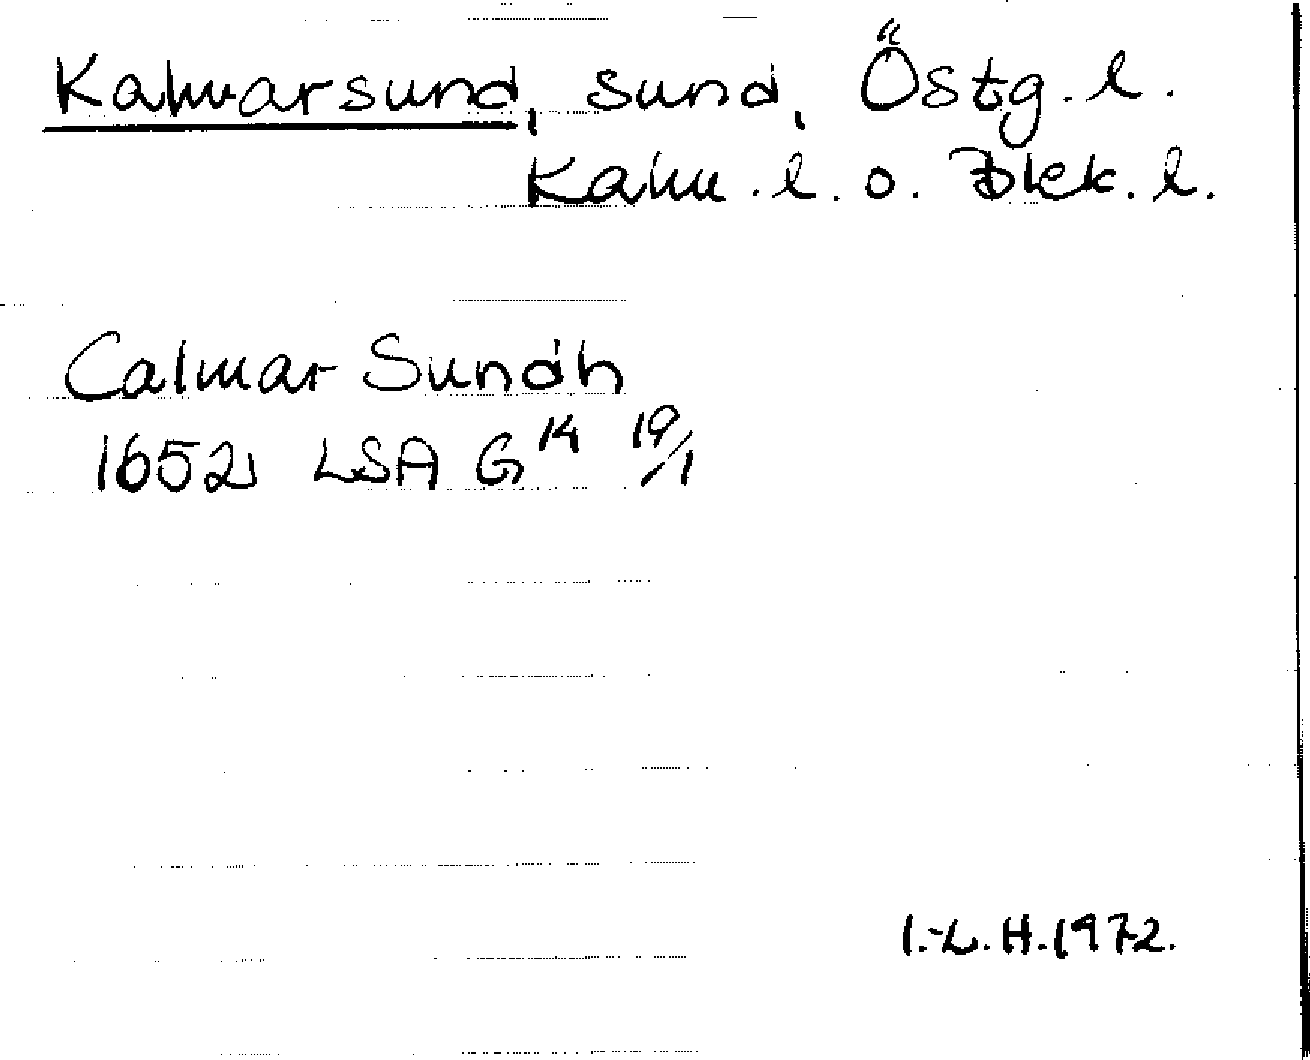 Kalmarsund, sund, Östg. l.
Kalm. l. o. Blek. l.
Calmar Sundh
1652 LSA G 14 19/1
I.-L. H. 1972.